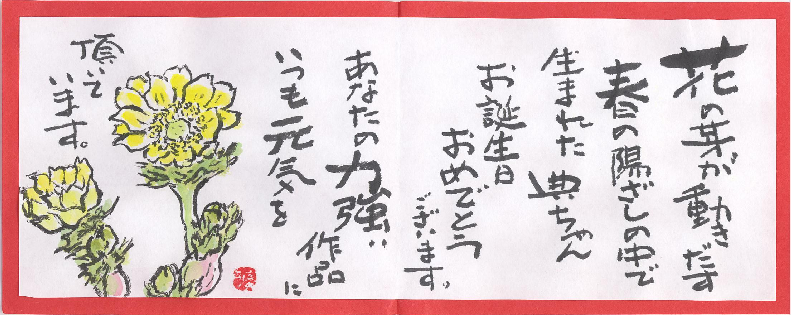 花の芽が動きだす
春の陽ざしの中で
生まれた典ちゃん
お誕生日
おめでとう
ございます。
あなたの力強い
作品に
いつも元気を
頂いて
います。